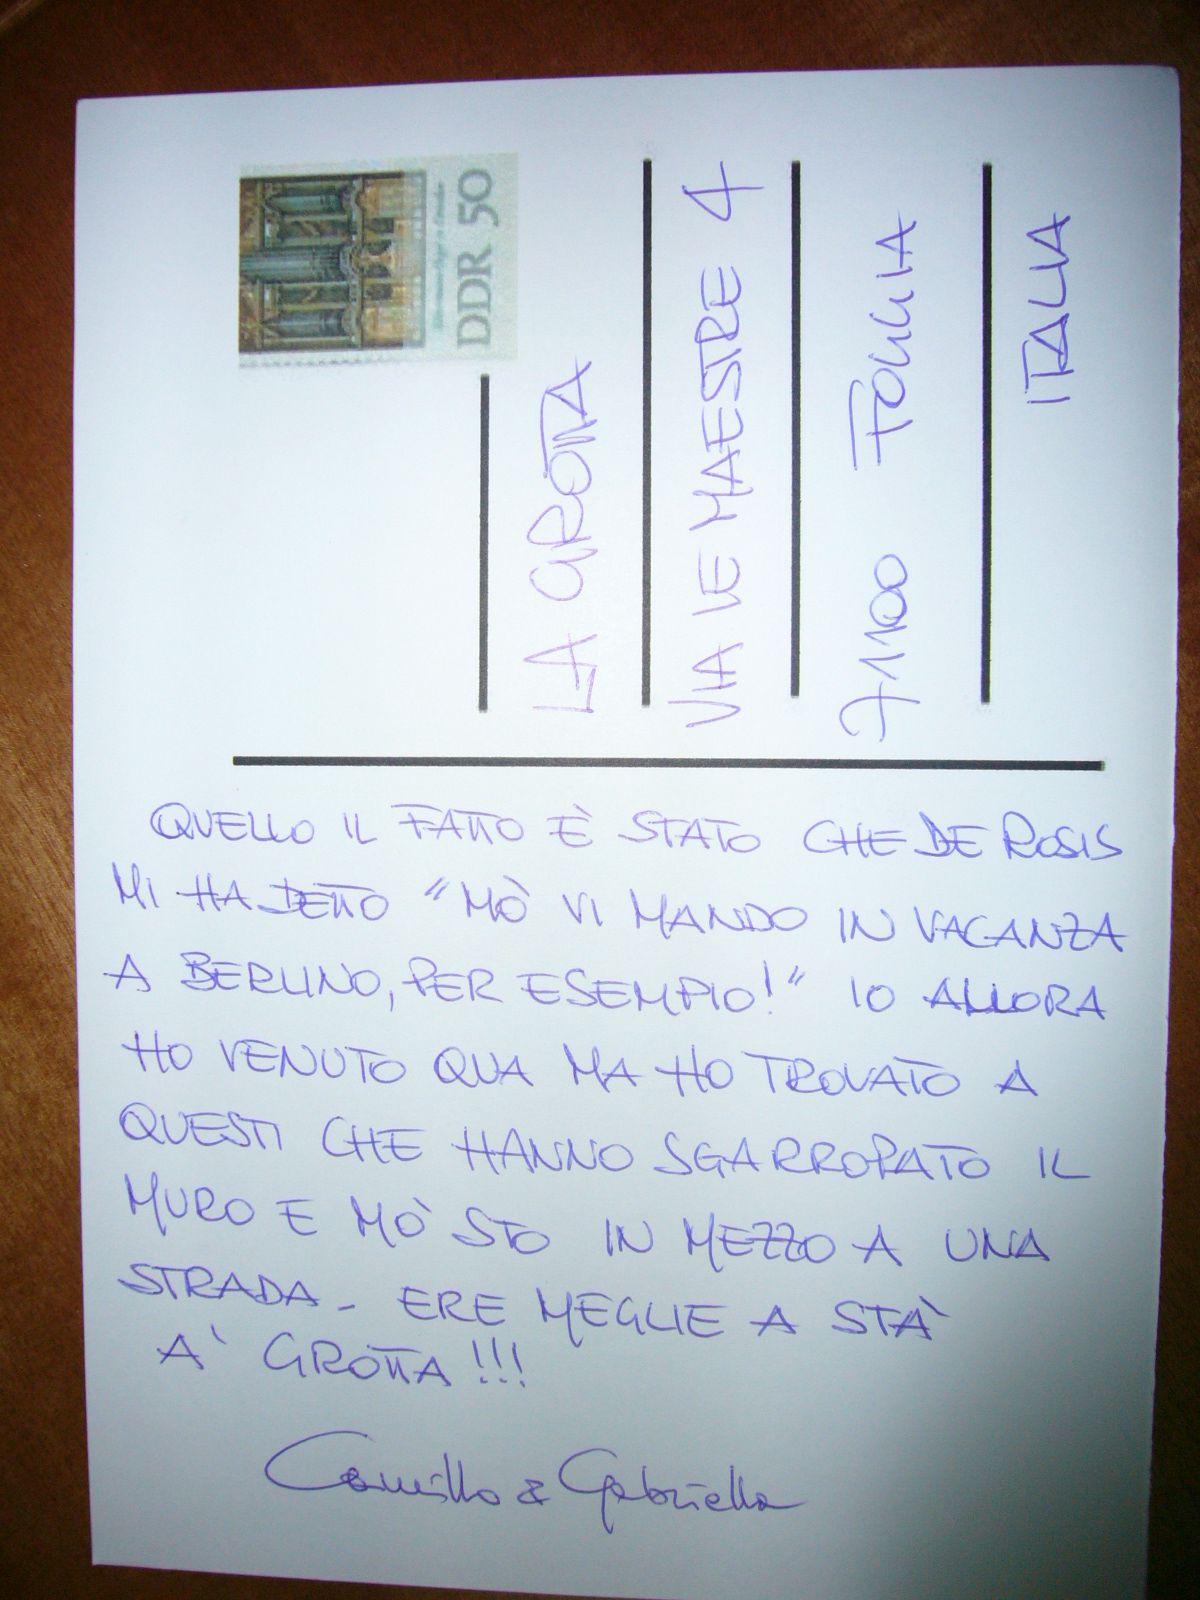 DDR 50
LA GROTTA
VIA LE MAESTRE 4
71100 FOGGIA
ITALIA
QUELLO IL FATTO È STATO CHE DE ROSIS
MI HA DETTO "MÒ VI MANDO IN VACANZA
A BERLINO, PER ESEMPIO!" IO ALLORA
HO VENUTO QUA MA HO TROVATO A
QUESTI CHE HANNO SGARROPATO IL
MURO E MÒ STO IN MEZZO A UNA
STRADA - ERE MEGLIE A STÀ
A` GROTTA!!!
Camillo & Gabriella